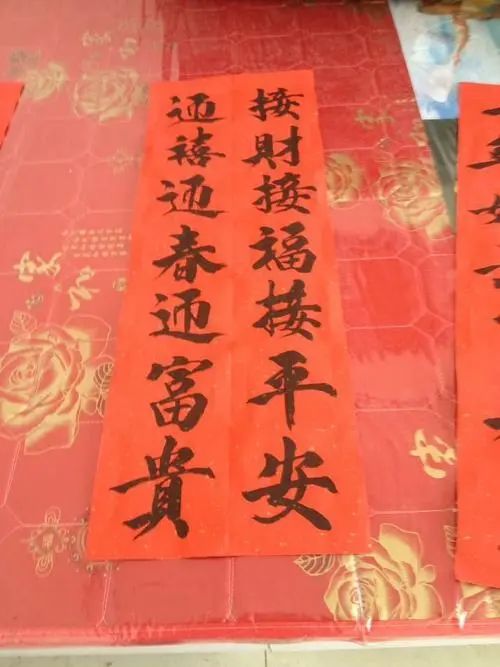 接財接福接平安
迎禧迎春迎富貴